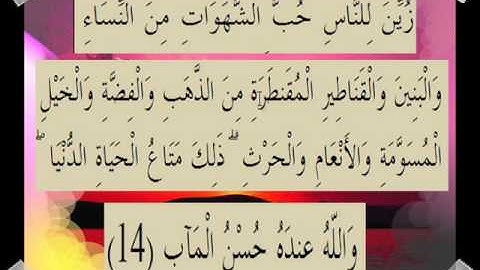 زُيِّنَ لِلنَّاسِ حُبُّ الشَّهَوَاتِ مِنَ النِّسَاءِ
وَالْبَنِينَ وَالْقَنَاطِيرِ الْمُقَنطَرَةِ مِنَ الذَّهَبِ وَالْفِضَّةِ وَالْخَيْلِ
الْمُسَوَّمَةِ وَالْأَنْعَامِ وَالْحَرْثِ ۗ ذَلِكَ مَتَاعُ الْحَيَاةِ الدُّنْيَا ۖ
وَاللَّهُ عِندَهُ حُسْنُ الْمَآبِ (14)